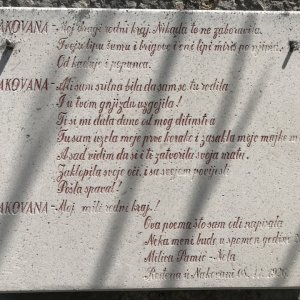 AKOVANA - Moj dragi rodni kraj. Nikada te ne zaboravila.
Tvoje lipe šume i brigove i oni lipi miris po njima.
Od kadulje i pepunca.
AKOVANA - Ali sam sritna bila da sam se tu rodila
I u tvom gnjizdu uzgojila!
Ti si mi dala dane od mog ditinstva
Tu sam uzela moje prve korake i zazvala moje majke
A sad vidim da si i ti zatvorila svoja vrata.
Zaklopila svoje oči, i sa svojom povijesti
Pošla spavat!
AKOVANA - Moj mili rodni kraj!
Ova poema što sam odi napisala
Neka meni bude u spomen godine
Milica Pamić - Nola
Rođena u Nakovani